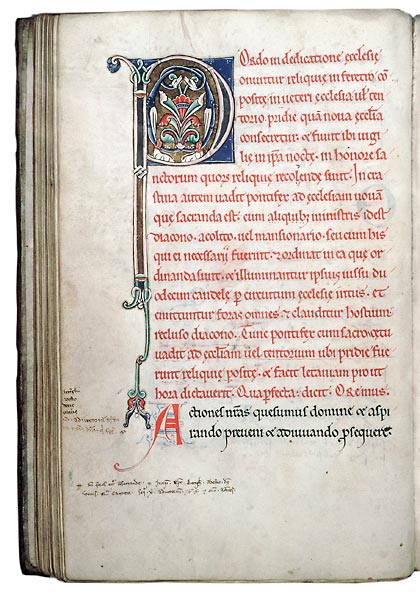 POrdo in dedicatione ęcclesię
ponuntur reliquię in feretro cō
positę in ueteri ecclesia ul ten
torio pridie quā noua ęcclia
consecretur. & fiunt ibi uigi
lię in ipsa noctę. in honore sa
nctorum quorū reliquię recondende sunt. In cra
stina autem uadit pontifex ad ecclesiam nouā
que sacranda est. cum aliquib; ministris idest
diacono. acolito. uel mansionario. seu cum his
qui ei necessarii fuerint. & ordinat in ea que or
dinanda sunt. & illuminantur ipsius iussu du
odecim candelę p circuitum ęcclesię intus. et
eiciuntur foras omnes & clauditur hostium
recluso diacono. Tunc pontifex cum sacro cetu
uadit ad ęccliam uel tentorium ubi pridie fue
runt reliquię positę. & facit letaniam prout
hora dictauerit. Qua pfecta. dicit. Oremus.
Actiones nrās quesumus domine & aspi
rando preueni & adiuuando psequere.